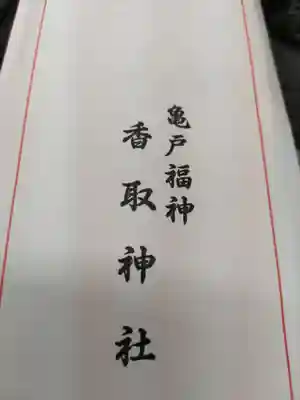 亀戸福神
香取神社